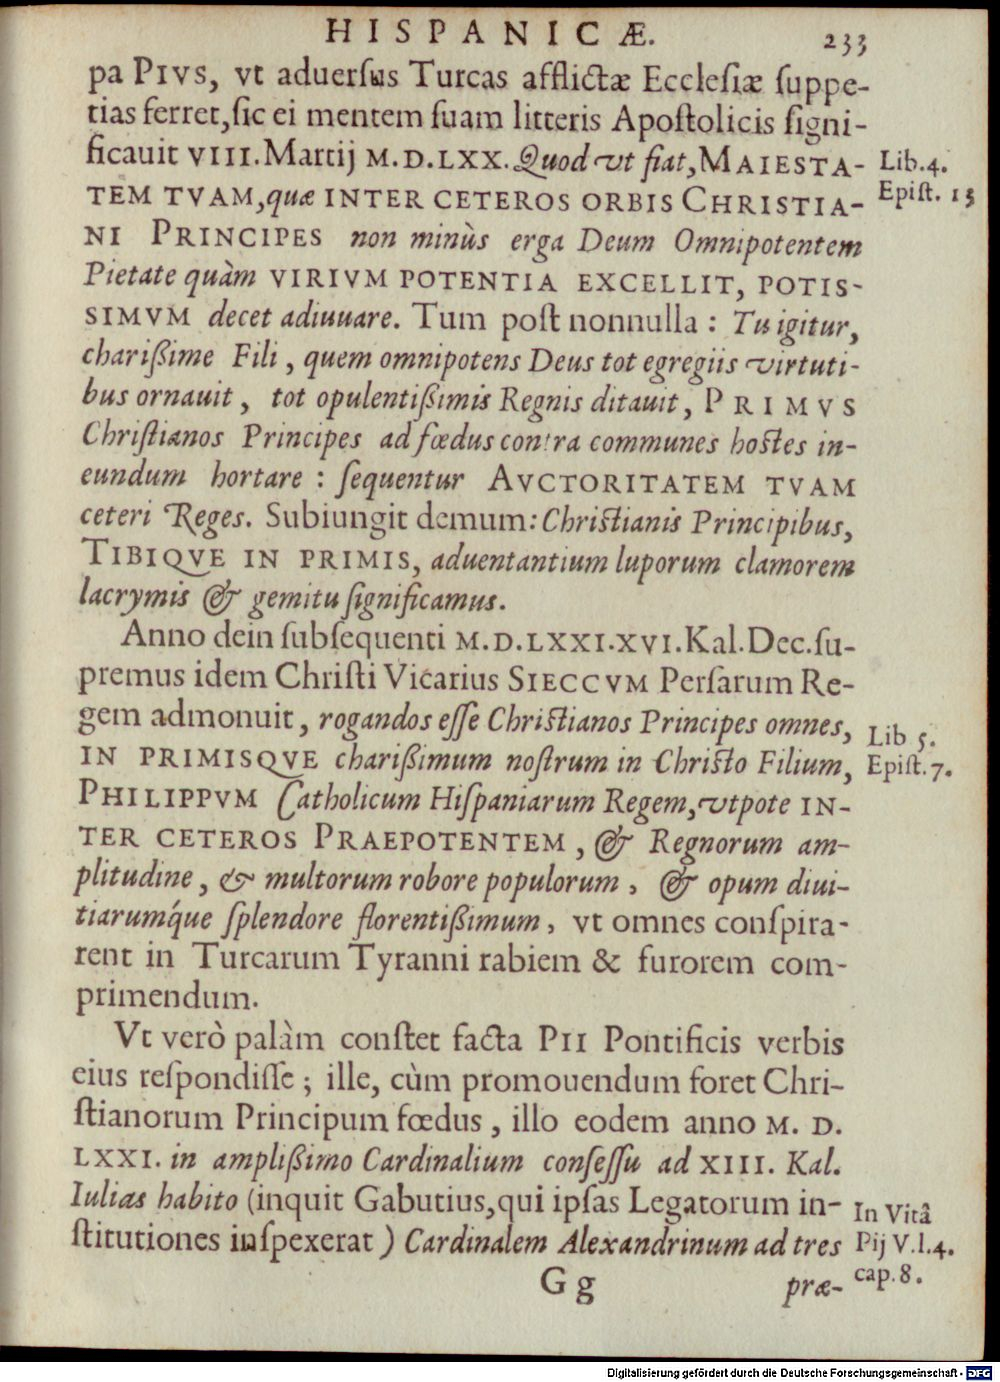 HISPANICÆ. 233
pa PIVS, vt aduersus Turcas afflictæ Ecclesiæ suppe-
tias ferret, sic ei mentem suam litteris Apostolicis signi-
ficauit VIII. Martij M.D.LXX. Quod vt fiat, MAIESTA-
Lib.4.
TEM TVAM, quæ INTER CETEROS ORBIS CHRISTIA-
Epist. 13
NI PRINCIPES non minùs erga Deum Omnipotentem
Pietate quàm VIRIVM POTENTIA EXCELLIT, POTIS-
SIMVM decet adiuuare. Tum post nonnulla: Tu igitur,
charißime Fili, quem omnipotens Deus tot egregiis virtuti-
bus ornauit, tot opulentißimis Regnis ditauit, PRIMVS
Christianos Principes ad fœdus contra communes hostes in-
eundum hortare: sequentur AVCTORITATEM TVAM
ceteri Reges. Subiungit demum: Christianis Principibus,
TIBIQVE IN PRIMIS, aduentantium luporum clamorem
lacrymis & gemitu significamus.
Anno dein subsequenti M.D.LXXI.XVI.Kal.Dec.su-
premus idem Christi Vicarius SIECCVM Persarum Re-
gem admonuit, rogandos esse Christianos Principes omnes,
Lib 5.
IN PRIMISQVE charißimum nostrum in Christo Filium,
Epist.7.
PHILIPPVM Catholicum Hispaniarum Regem, vtpote IN-
TER CETEROS PRAEPOTENTEM, & Regnorum am-
plitudine, & multorum robore populorum, & opum diui-
tiarumq́ue splendore florentißimum, vt omnes conspira-
rent in Turcarum Tyranni rabiem & furorem com-
primendum.
Vt verò palàm constet facta PII Pontificis verbis
eius respondisse; ille, cùm promouendum foret Chri-
stianorum Principum fœdus, illo eodem anno M. D.
LXXI. in amplißimo Cardinalium consessu ad XIII. Kal.
Iulias habito (inquit Gabutius, qui ipsas Legatorum in-
In Vitâ
stitutiones inspexerat) Cardinalem Alexandrinum ad tres
Pij V.l.4.
cap.8.
Gg præ-
Digitalisierung gefördert durch die Deutsche Forschungsgemeinschaft - DFG